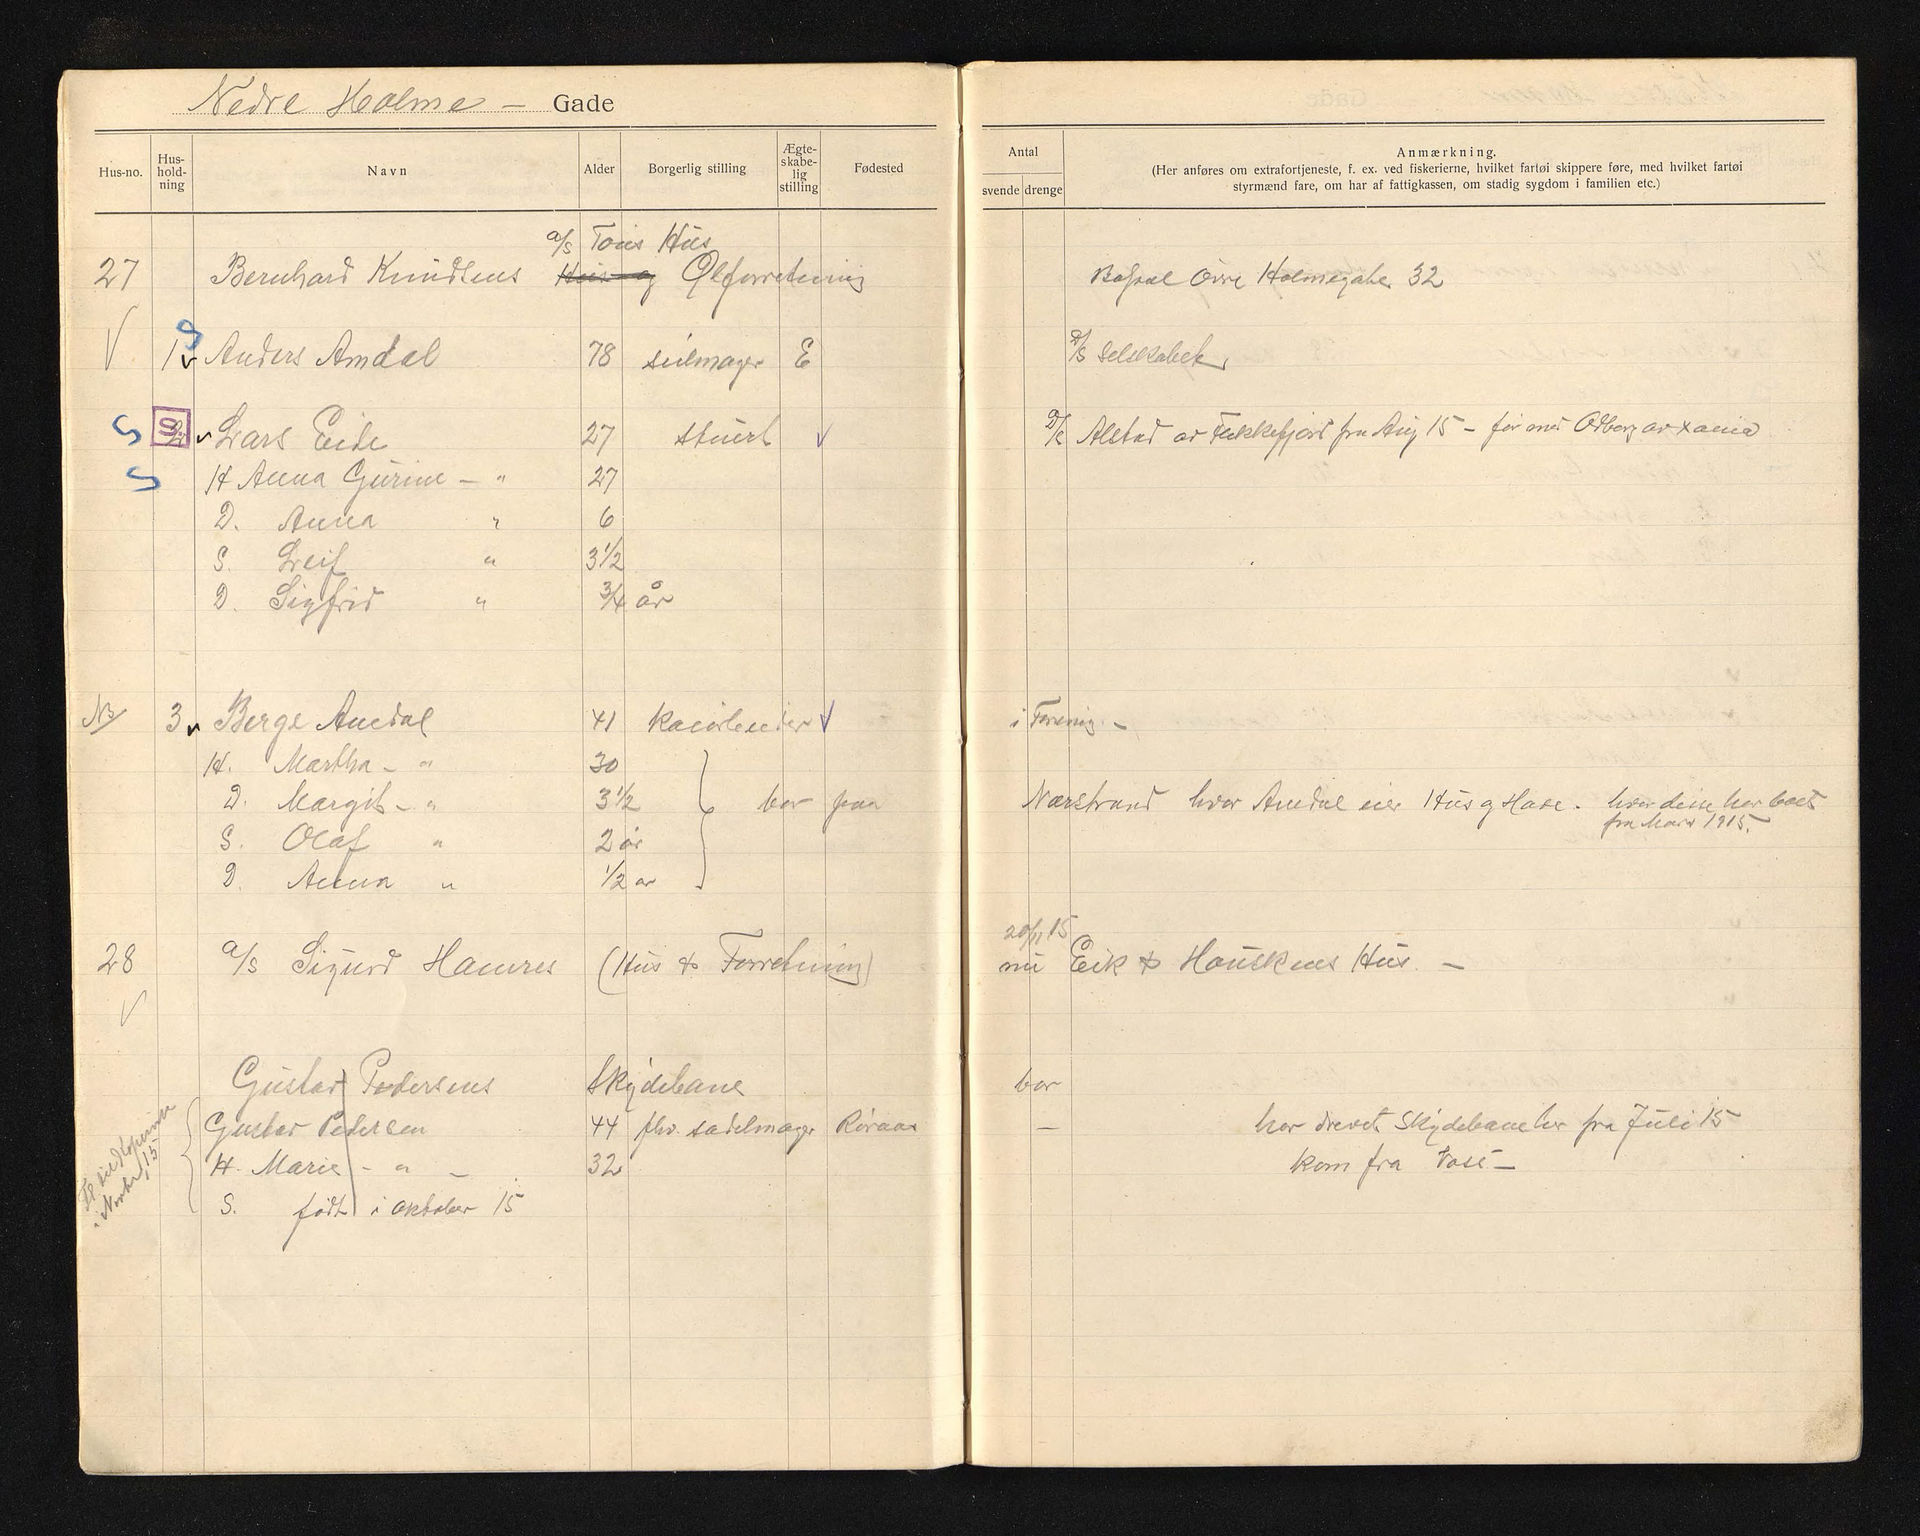 Nedre Holme – Gade
Hus-no. Hus-hold-ning Navn Alder Borgerlig stilling Ægte-skabe-lig stilling Fødested
Antal svende drenge
Anmærkning.
(Her anføres om extrafortjeneste, f. ex. ved fiskerierne, hvilket fartøi skippere føre, med hvilket fartøi
styrmænd fare, om har af fattigkassen, om stadig sygdom i familien etc.)
a/s Tous Hus
27 Bernhard Knudsens Hus og Ølforretning Holmegate 32
1 Anders Amdal 78 seilmager E a/s
S Lars Eide 27 stuert Alstad av Flekkefjord fra Aug 15 – før med Odberg av Xania
S H Anna Gurine – " 27
D. Anna " 6
S. Leif " 3 1/2
D. Sigfrid " 3/4 år
NB 3 Berge Amdal 41 kaiarbeider i Forening –
H. Martha – " 30
D. Margit – " 3 1/2 bor paa Nærstrand hvor Amdal eier Hus og Have. hvor disse har boet
fra Mars 1915.
S. Olaf " 2 år
D. Anna " 1/2 år
20/11 15
28 a/s Sigurd Hamres (Hus & Forretning) nu Eik & Hauskens Hus. –
Gustav Pedersens Skydebane bor
Gustav Pedersen 44 fhv. sadelmager Røraas – har drevet Skydebane her fra Juli 15
H. Marie – " – 32 kom fra Voss –
S. født i oktober 15
i Novbr. 15